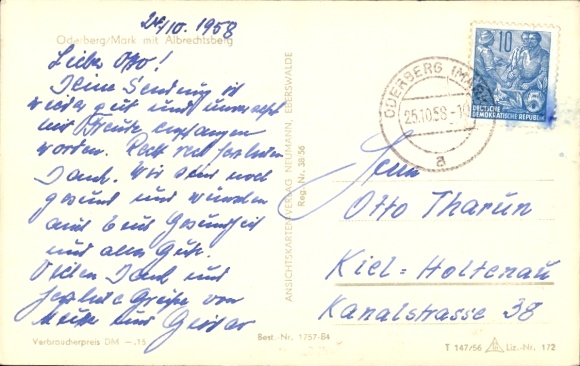 24/10. 1958
Oderberg/Mark mit Albrechtsberg
Lieber Otto!
Deine Sendung ist
wieder gut und unversehrt
mit Freude empfangen
worden. Recht herzlichen
Dank. Wir sind noch
gesund und wünschen
auch Euch Gesundheit
und alles Gute.
Vielen Dank und
herzliche Grüße von
und
Verbraucherpreis DM —.15
Best. Nr. 1757-B4
ANSICHTSKARTENVERLAG NEUMANN, EBERSWALDE
Reg.-Nr. 38 56
ODERBERG (MARK)
25.10.58
a
10
DEUTSCHE
DEMOKRATISCHE REPUBLIK
5
Herrn
Otto Tharun
Kiel=Holtenau
Kanalstrasse 38
T 147/56 Liz.-Nr. 172